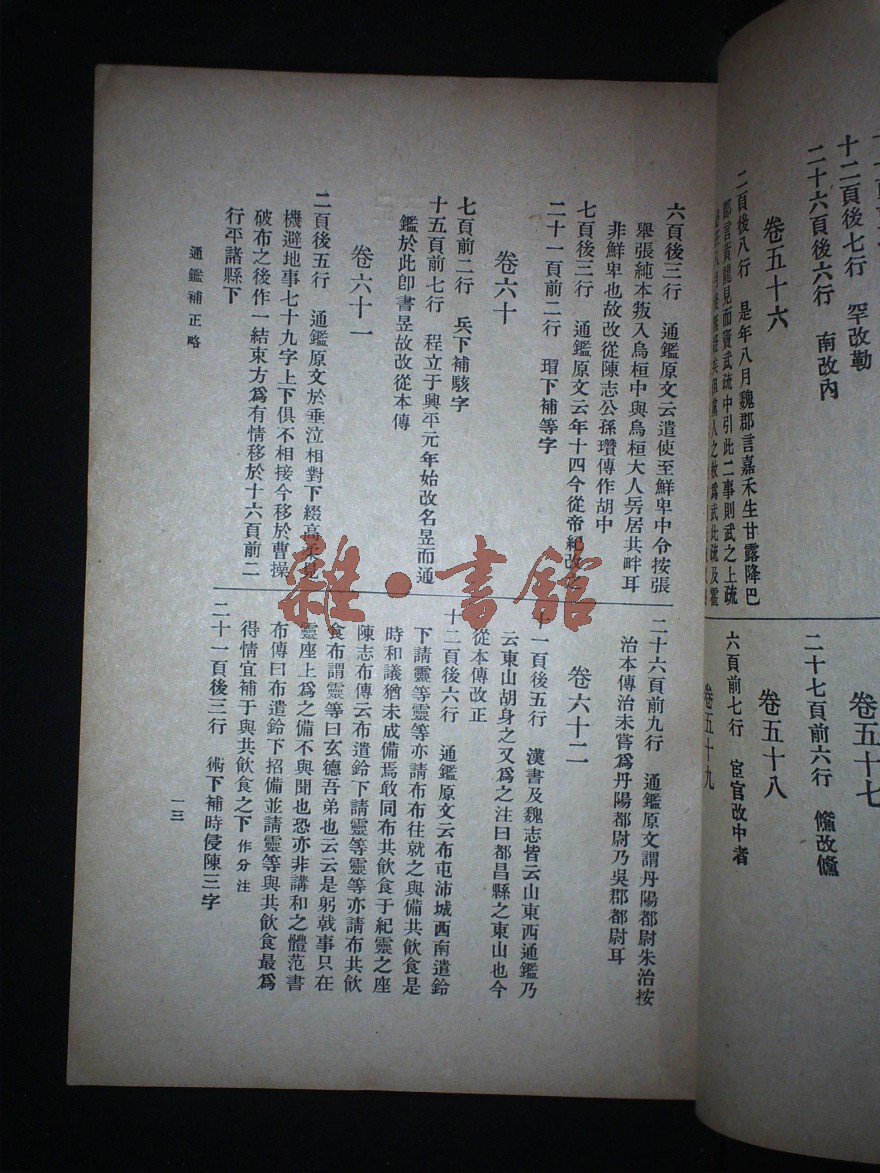 十二頁後七行　罕改勒
二十六頁後六行　南改內
卷五十六
二頁後八行　是年八月魏郡言嘉禾生甘露降巴
郡言黃龍見而竇武疏中引此二事則武之上疏
人之赦爲武此疏及霍
卷五十七
二十七頁前六行　脩改儵
卷五十八
六頁前七行　宦官改中者
卷五十九
六頁後三行　通鑑原文云遣使至鮮卑中令按張
舉張純本叛入烏桓中與烏桓大人丘居共畔耳
非鮮卑也故改從陳志公孫瓚傳作胡中
七頁後三行　通鑑原文云年十四今從帝紀改
二十一頁前二行　瑁下補等字
卷六十
七頁前二行　兵下補駭字
十五頁前七行　程立于興平元年始改名昱而通
鑑於此卽書昱故改從本傳
卷六十一
二頁後五行　通鑑原文於垂泣相對下綴高柔見
機避地事七十九字上下俱不相接今移於曹操
破布之後作一結束方爲有情移於十六頁前二
行平諸縣下
二十六頁前九行　通鑑原文謂丹陽都尉朱治按
治本傳治未嘗爲丹陽都尉乃吳郡都尉耳
卷六十二
十一頁後五行　漢書及魏志皆云山東西通鑑乃
云東山胡身之又爲之注曰都昌縣之東山也今
從本傳改正
十二頁後六行　通鑑原文云布屯沛城西南遣鈴
下請靈等靈等亦請布布往就之與備共飲食是
時和議猶未成備焉敢同布共飲食于紀靈之座
陳志布傳云布遣鈴下請靈等靈等亦請布共飲
食布謂靈等曰玄德吾弟也云云是躬戟事只在
靈座上爲之備不與聞也恐亦非講和之體范書
布傳曰布遣鈴下招備並請靈等與共飲食最爲
得情宜補于與共飲食之下 作分注
二十一頁後三行　術下補時侵陳三字
通鑑補正略
一三
雜·書館